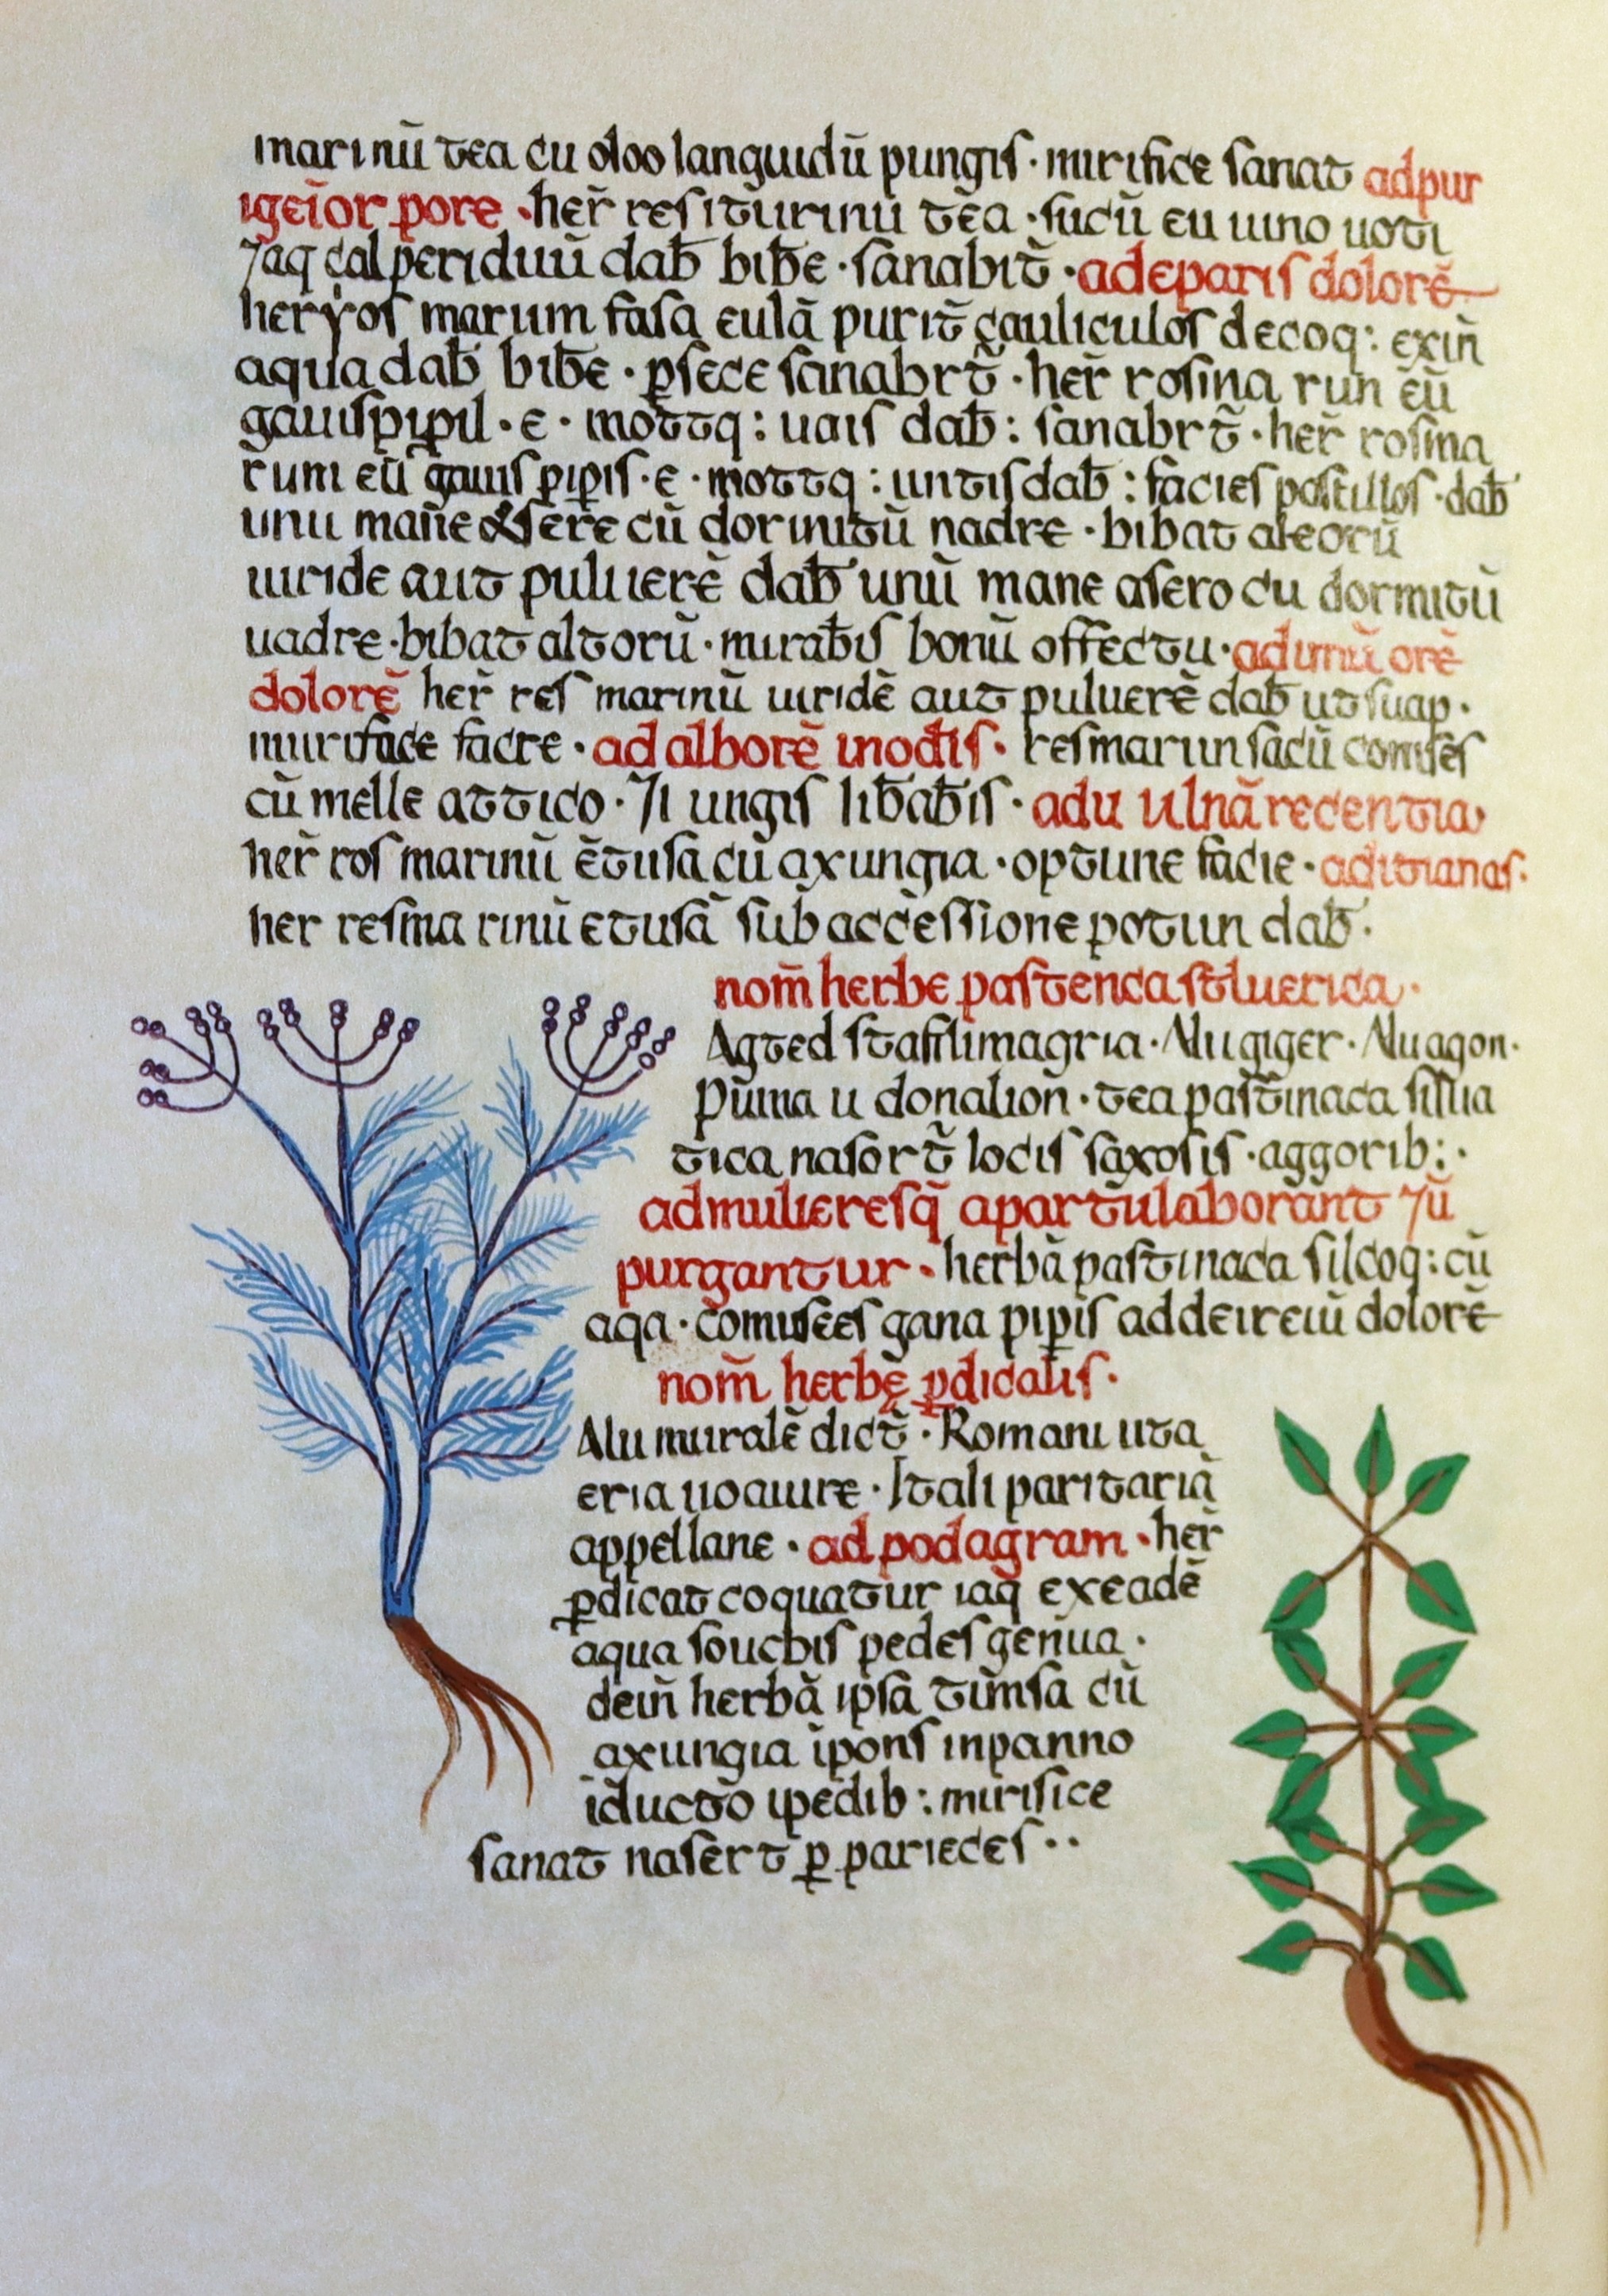 marinū tea cu oloo languidū pungis · mirifice sanat adpur
igeīor pore · her̄ resitūrinū tēa · sucū eu uino uoti
⁊aq cal periduū dab̄ bib̄e · sanabit̄ · adeparis dolorē
her ros marum fasa eulā purit̄ cauliculos decoq: exin̄
aqua dab̄ bib̄e · ꝑsece sanabrt̄ · her̄ rosina run eū
gauispipil · e · mottq: uais dab̄: sanabrt̄ · her̄ rosma
rum eū gauis piꝑis · e · mottq: untis dab̄: facies pastillos · dab̄
unu mañe & sere cū dormitū nadre · bibat aleorū
uiride aut puluerē dab̄ unū mane asero cu dormitū
uadre · bibat altorū · mirab̄is bonū offectu · adimū orē
dolorē her̄ res marinū uiridē aut puluerē dab̄ ut suap ·
muriface facre · ad alborē inodis · resmarun sacū comises
cū melle attico · ⁊i ungis lib̄ab̄is · adu ulnā recentia
her̄ ros marinū ētusa cū axungia · optune facie · aditianas ·
her resma rinū etusā sub accessione potun dab̄ ·
nom̄ herbe pastenca stluerica ·
Agted stafilimagria · Alu giger · Alu agon ·
Pūma u donalion̄ · tea past̄inaca silua
tica nasort̄ locis saxosis · aggorib: ·
admulieresq̄ apartūlaborant ⁊ū
purgantur · herbā pastinaca silcoq: cū
aqa · comisees gana piꝑis addeireiū dolorē
nom̄ herbę ꝑdicalis ·
Alu muralē dict̄ · Romani uta
eria uoauire · Itali paritariā
appellane · ad podagram · her̄
ꝑdicat coquatur iaq exeadē
aqua soucbis pedes genua ·
dein̄ herbā ipsā tim̄sa cū
axungia ipons inpanno
iductō ipedib: mirifice
sanat nasert ꝑ parieces · ·